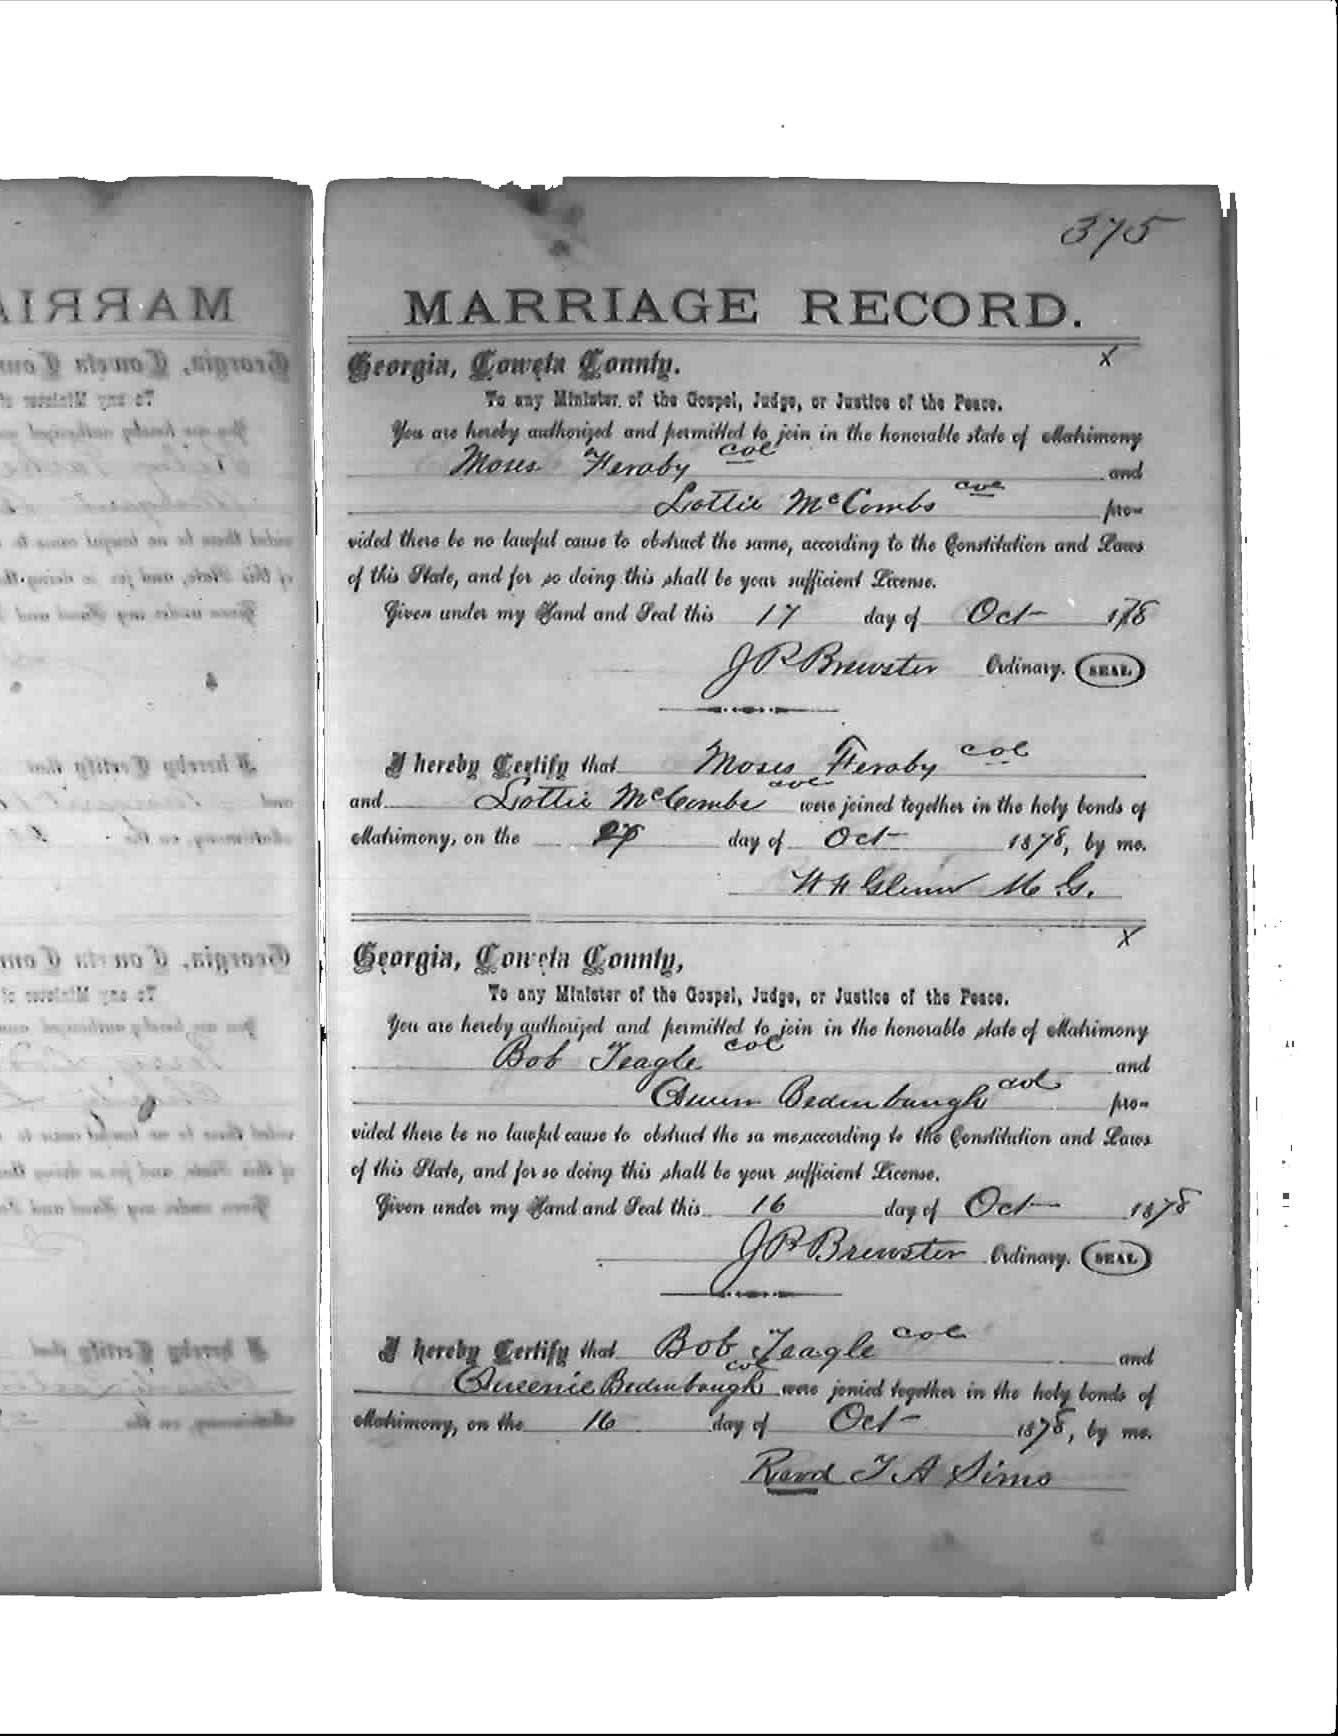 375
MARRIAGE RECORD.
x
Georgia, Coweta County.
To any Minister of the Gospel, Judge, or Justice of the Peace.
You are hereby authorized and permitted to join in the honorable state of Matrimony
Moses Feraby col and
Lottie McCombs col pro-
vided there be no lawful cause to obstruct the same, according to the Constitution and Laws
of this State, and for so doing this shall be your sufficient License.
Given under my Hand and Seal this 17 day of Oct 1878
J P Brewster Ordinary. SEAL
I hereby Certify that Moses Feraby col
and Lottie McCombs col were joined together in the holy bonds of
Matrimony, on the day of Oct 1878, by me.
W H Glenn M G.
x
Georgia, Coweta County,
To any Minister of the Gospel, Judge, or Justice of the Peace.
You are hereby authorized and permitted to join in the honorable state of Matrimony
Bob Teagle col and
Bedenbaugh col pro-
vided there be no lawful cause to obstruct the sa me,according to the Constitution and Laws
of this State, and for so doing this shall be your sufficient License.
Given under my Hand and Seal this 16 day of Oct 1878
J P Brewster Ordinary. SEAL
I hereby Certify that Bob Teagle col and
Queenie Bedenbaugh col were jonied together in the holy bonds of
Matrimony, on the 16 day of Oct 1878, by me.
Revd T A Sims